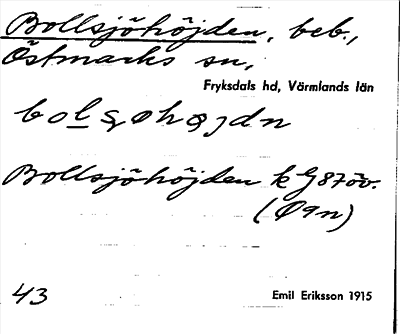 Bollsjöhöjden, beb.,
Östmarks sn,
Fryksdals hd, Värmlands län
Bollsjöhöjden k G87öv.
(Ø9n)
43
Emil Eriksson 1915